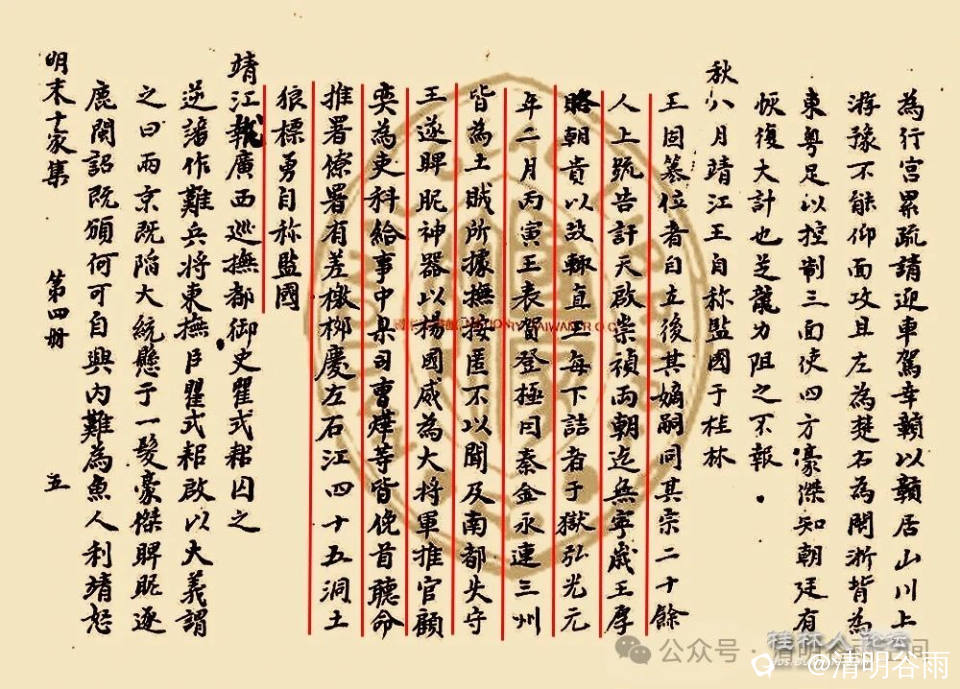 為行宮累疏請迎車駕幸贛以贛居山川上
游豫不能仰面攻且左為楚右為閩浙背為
東粵足以控制三面使四方豪傑知朝廷有
恢復大計也芝龍力阻之不報
秋八月靖江王自称監國于桂林
王固篡位者自立後其嫡嗣同其宗二十餘
人上號告訐天啟崇禎両朝迄無寧歲王厚
賂朝貴以故輒直王每下詰者于獄弘光元
年二月丙寅王表賀登極曰秦金永連三州
皆為土賊所據撫按匿不以聞及南都失守
王遂睥睨神器以楊國威為大将軍推官顧
奕為吏科給事中臬司曹燁等皆俛首聽命
推署僚署有差檄柳慶左右江四十五洞土
狼標勇自称監國
靖江執廣西巡撫都御史瞿式耜囚之
逆藩作難兵将東撫臣瞿式耜啟以大義謂
之曰両京既陷大統懸于一髮豪傑睥睨逐
鹿閩詔既頒何可自興内難為魚人利靖怒
明末十家集 第四册 五
TAIWAN R.O.C
桂林人论坛
公众号 · 清明
@清明谷雨